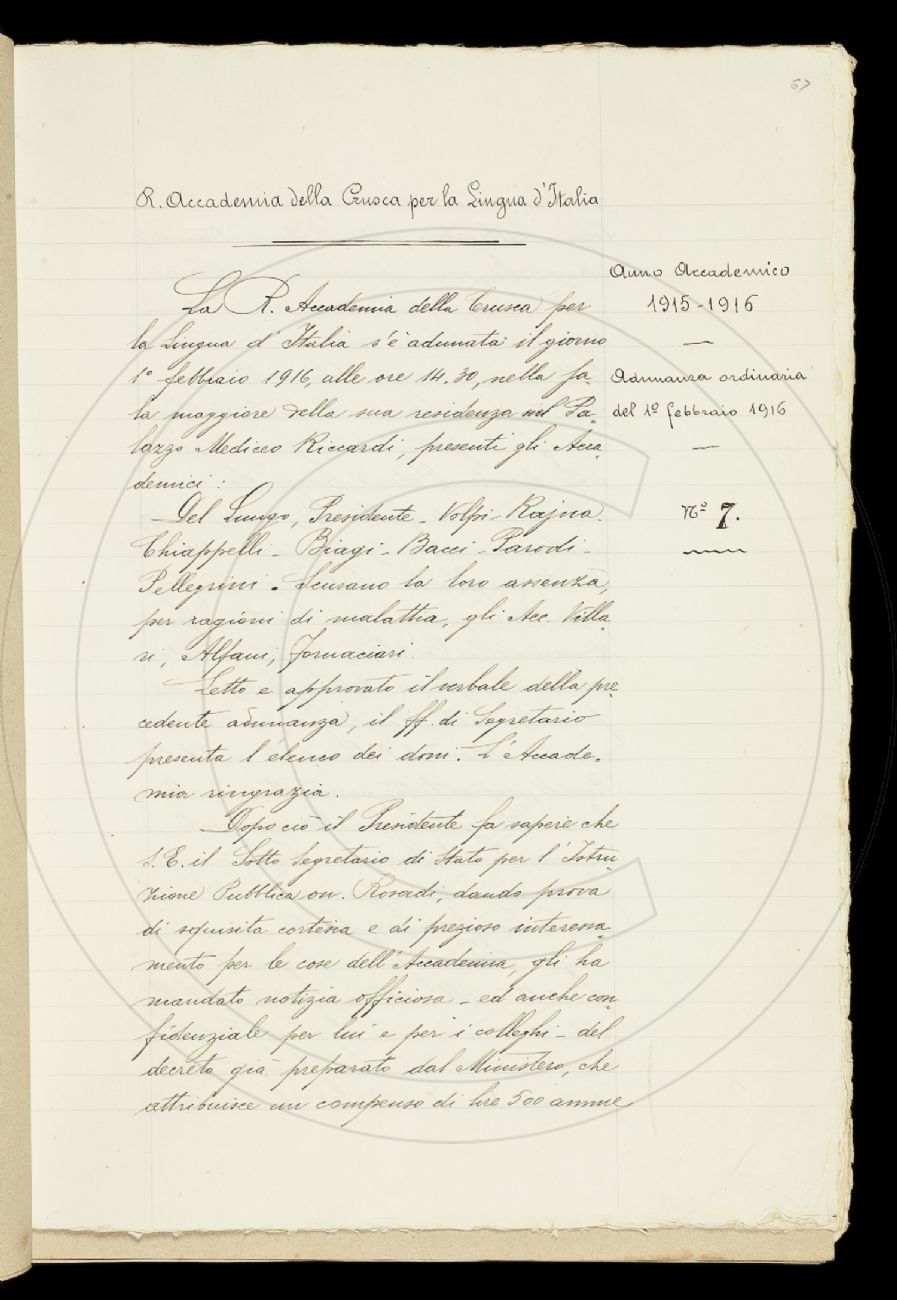 67
R. Accademia della Crusca per la Lingua d'Italia
Anno Accademico
1915-1916
Adunanza ordinaria
del 1º febbraio 1916
Nº 7.
La R. Accademia della Crusca per
la Lingua d'Italia s'è adunata il giorno
1º febbraio 1916, alle ore 14.30, nella sa-
la maggiore della sua residenza nel Pa-
lazzo Mediceo Riccardi, presenti gli Acca-
demici:
Del Lungo, Presidente - Volpi - Rajna -
Chiappelli - Biagi - Bacci - Parodi -
Pellegrini. Scusano la loro assenza,
per ragioni di malattia, gli Acc. Villa-
ri, Alfani, Fornaciari.
Letto e approvato il verbale della pre-
cedente adunanza, il ff. di Segretario
presenta l'elenco dei doni. L'Accade-
mia ringrazia.
Dopo ciò il Presidente fa sapere che
S. E. il Sotto Segretario di Stato per l'Istru-
zione Pubblica on. Rosadi, dando prova
di squisita cortesia e di prezioso interessa-
mento per le cose dell'Accademia, gli ha
mandato notizia officiosa - ed anche con-
fidenziale per lui e per i colleghi - del
decreto già preparato dal Ministero, che
attribuisce un compenso di lire 500 annue